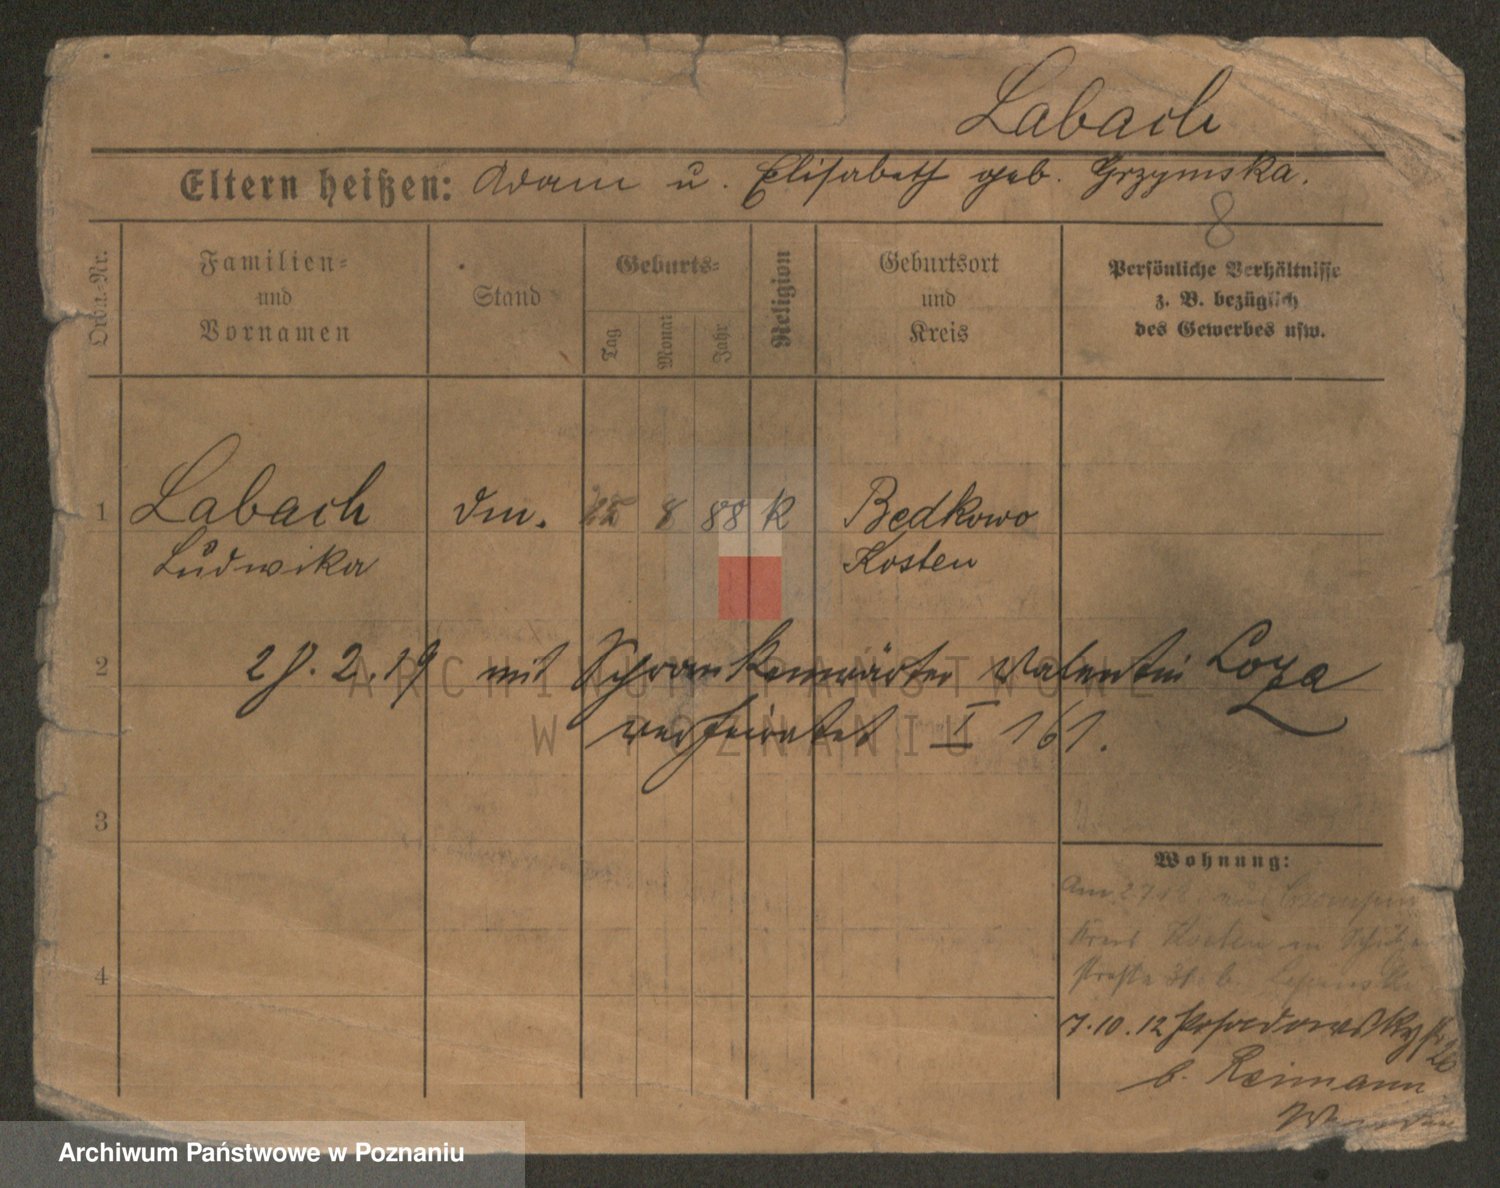 Labach
Eltern heißen: Adam u. Elisabeth geb. Grzymska.
8
Ordn.-Nr.
Familien-
und
Vornamen
Stand
Geburts-
Tag
Monat
Jahr
Religion
Geburtsort
und
Kreis
Persönliche Verhältnisse
z. B. bezüglich
des Gewerbes usw.
1 Labach dm. 25 8 88 k Będkowo
Ludwika Kosten
2 28. 2. 19 mit Schrankenwärter Valentin Loza
verheiratet I 161.
3
Wohnung:
Am 2.7.12
Kreis Kosten in
4
7.10.12 Posadowsky str 26
b. Reimann
ARCHIWUM PAŃSTWOWE
W POZNANIU
Archiwum Państwowe w Poznaniu